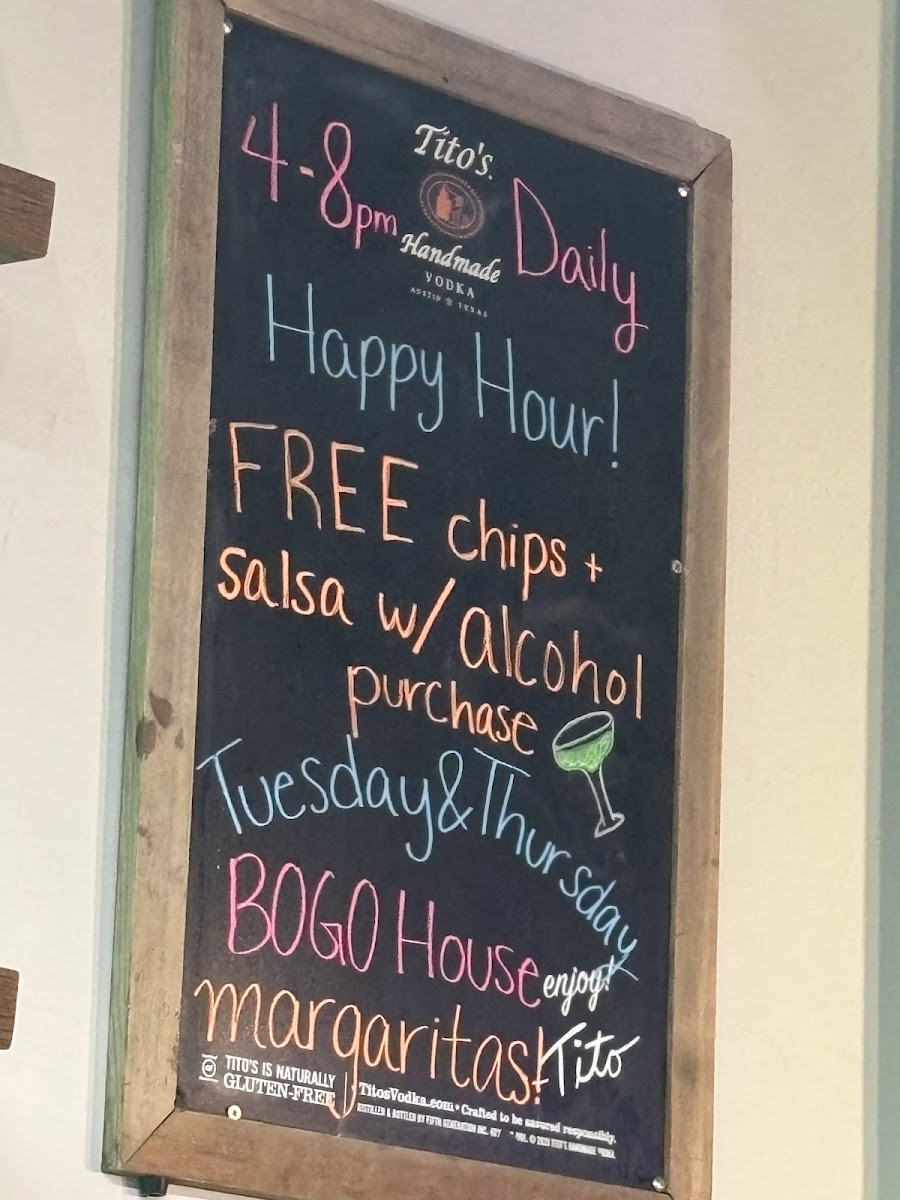 Tito's
4-8pm Daily
Handmade
VODKA
AUSTIN TEXAS
Happy Hour!
FREE chips +
salsa w/ alcohol
purchase
Tuesday & Thursday
BOGO House
enjoy!
margaritas!
Tito
TITO'S IS NATURALLY
GLUTEN-FREE
TitosVodka.com • Crafted to be savored responsibly.
DISTILLED & BOTTLED BY FIFTH GENERATION INC. 40% © TITO'S HANDMADE VODKA.